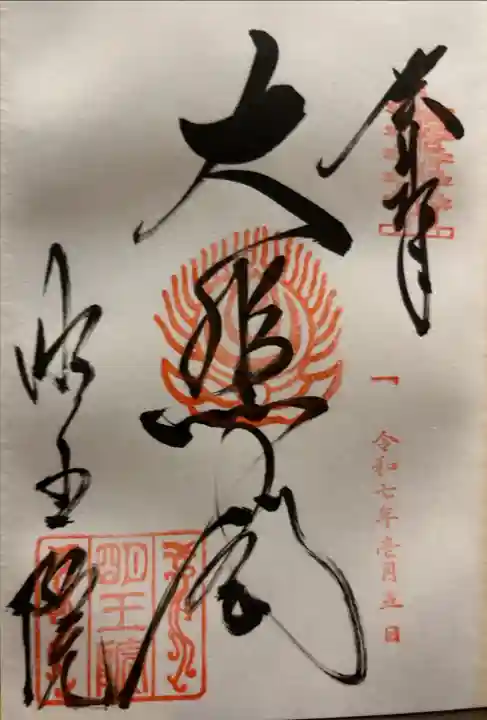 奉拝
一 令和七年壱月五日
大悲閣
明王院
明王院